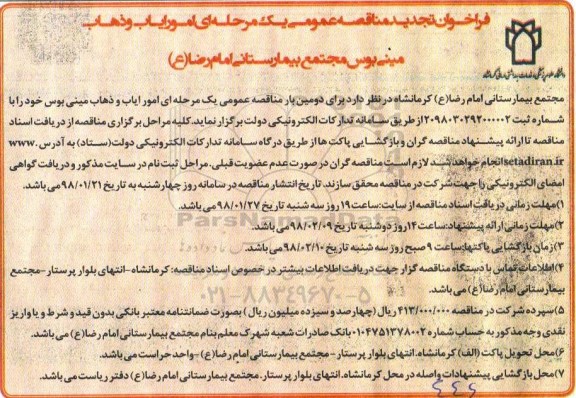 فراخوان تجدید مناقصه عمومی یک مرحله ای امور ایاب و ذهاب
مینی بوس مجتمع بیمارستانی امام رضا(ع)
مجتمع بیمارستانی امام رضا(ع) کرمانشاه در نظر دارد برای دومین بار مناقصه عمومی یک مرحله ای امور ایاب و ذهاب مینی بوس خود را با
شماره ثبت ۲۰۹۸۰۳۰۲۹۲۰۰۰۰۰۲ از طریق سامانه تدارکات الکترونیکی دولت برگزار نماید. کلیه مراحل برگزاری مناقصه از دریافت اسناد
مناقصه تا ارائه پیشنهاد مناقصه گران و بازگشایی پاکت ها از طریق درگاه سامانه تدارکات الکترونیکی دولت(ستاد) به آدرس .www
setadiran.ir انجام خواهد شد لازم است مناقصه گران در صورت عدم عضویت قبلی، مراحل ثبت نام در سایت مذکور و دریافت گواهی
امضای الکترونیکی را جهت شرکت در مناقصه محقق سازند. تاریخ انتشار مناقصه در سامانه روز چهارشنبه به تاریخ ۹۸/۰۱/۲۱ می باشد.
۱)مهلت زمانی دریافت اسناد مناقصه از سایت: ساعت ۱۹ روز سه شنبه تاریخ ۹۸/۰۱/۲۷ می باشد.
۲)مهلت زمانی ارائه پیشنهاد: ساعت ۱۴ روز دوشنبه تاریخ ۹۸/۰۲/۰۹ می باشد.
۳)زمان بازگشایی پاکتها: ساعت ۹ صبح روز سه شنبه تاریخ ۹۸/۰۲/۱۰ می باشد.
۴)اطلاعات تماس با دستگاه مناقصه گزار جهت دریافت اطلاعات بیشتر در خصوص اسناد مناقصه: کرمانشاه-انتهای بلوار پرستار-مجتمع
بیمارستانی امام رضا(ع) می باشد.
۵)سپرده شرکت در مناقصه ۴۱۳/۰۰۰/۰۰۰ ریال (چهارصد و سیزده میلیون ریال) بصورت ضمانتنامه معتبر بانکی بدون قید و شرط و یا واریز
نقدی وجه مذکور به حساب شماره ۰۱۰۴۷۵۱۳۷۸۰۰۲ بانک صادرات شعبه شهرک معلم بنام مجتمع بیمارستانی امام رضا(ع) می باشد.
۶)محل تحویل پاکت (الف) کرمانشاه. انتهای بلوار پرستار-مجتمع بیمارستانی امام رضا(ع)-واحد حراست می باشد.
۷)محل بازگشایی پیشنهادات واصله در محل کرمانشاه. انتهای بلوار پرستار. مجتمع بیمارستانی امام رضا(ع) دفتر ریاست می باشد.
ParsNamadData
۰۲۱-۸۸۳۴۹۶۷۰-۵